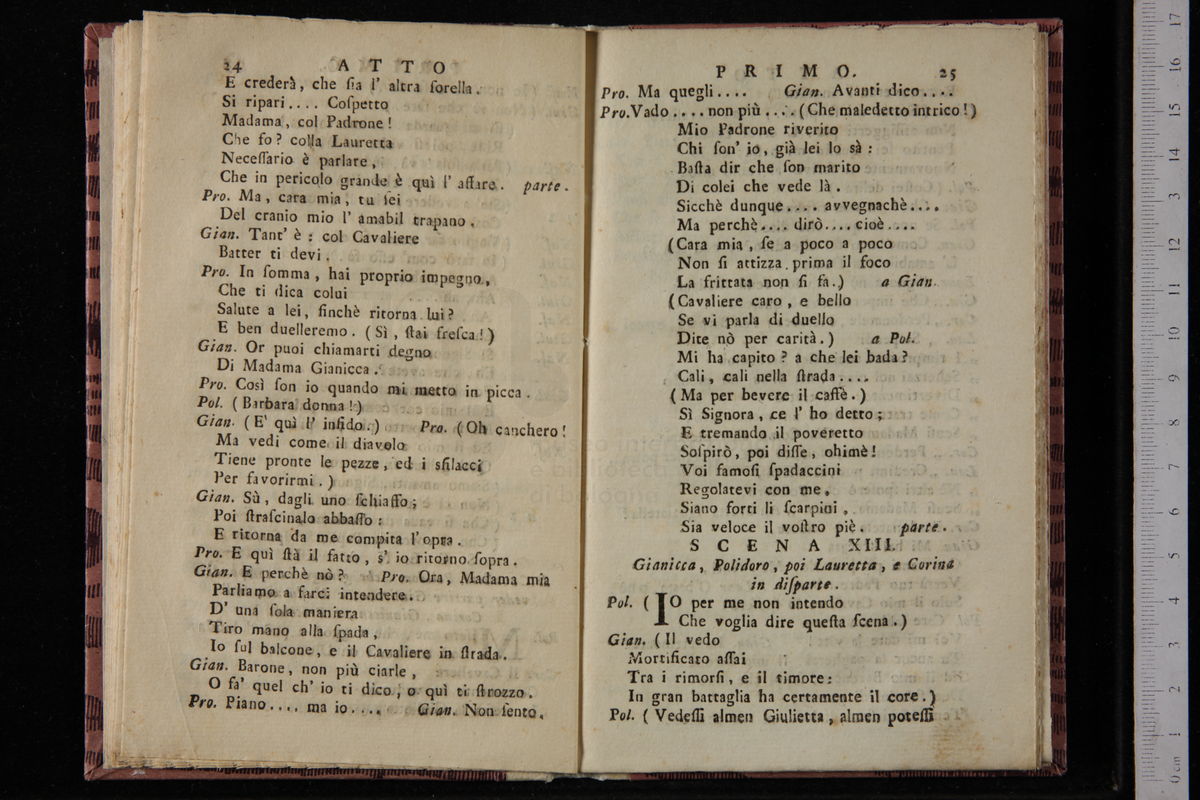 24 ATTO
E crederà, che ſia l' altra ſorella.
Si ripari.... Coſpetto
Madama, col Padrone!
Che fo? colla Lauretta
Neceſſario è parlare,
Che in pericolo grande è quì l' affare. parte.
Pro. Ma, cara mia, tu ſei
Del cranio mio l' amabil trapano.
Gian. Tant' è: col Cavaliere
Batter ti devi.
Pro. In ſomma, hai proprio impegno,
Che ti dica colui
Salute a lei, finchè ritorna lui?
E ben duelleremo. (Sì, ſtai freſca!)
Gian. Or puoi chiamarti degno
Di Madama Gianicca.
Pro. Così ſon io quando mi metto in picca.
Pol. (Barbara donna!)
Gian. (E' quì l' infido.) Pro. (Oh canchero!
Ma vedi come il diavolo
Tiene pronte le pezze, ed i sfilacci
Per favorirmi.)
Gian. Sù, dagli uno ſchiaffo;
Poi ſtraſcinalo abbaſſo:
E ritorna da me compita l'opra.
Pro. E quì ſtà il fatto, s' io ritorno ſopra.
Gian. E perchè nò? Pro. Ora, Madama mia
Parliamo a farci intendere.
D' una ſola maniera
Tiro mano alla ſpada,
Io ſul balcone, e il Cavaliere in ſtrada.
Gian. Barone, non più ciarle,
O fa' quel ch' io ti dico, o quì ti ſtrozzo.
Pro. Piano.... ma io.... Gian. Non ſento.
PRIMO. 25
Pro. Ma quegli.... Gian. Avanti dico....
Pro. Vado.... non più.... (Che maledetto intrico!)
Mio Padrone riverito
Chi ſon' io, già lei lo sà:
Baſta dir che ſon marito
Di colei che vede là.
Sicchè dunque.... avvegnachè....
Ma perchè.... dirò.... cioè....
(Cara mia, ſe a poco a poco
Non ſi attizza prima il foco
La frittata non ſi fa.) a Gian.
(Cavaliere caro, e bello
Se vi parla di duello
Dite nò per carità.) a Pol.
Mi ha capito? a che lei bada?
Cali, cali nella ſtrada....
(Ma per bevere il caffè.)
Sì Signora, ce l' ho detto;
E tremando il poveretto
Soſpirò, poi diſſe, ohimè!
Voi famoſi ſpadaccini
Regolatevi con me,
Siano forti li ſcarpini,
Sia veloce il voſtro piè. parte.
SCENA XIII.
Gianicca, Polidoro, poi Lauretta, e Corina
in diſparte.
Pol. (IO per me non intendo
Che voglia dire queſta ſcena.)
Gian. (Il vedo
Mortificato aſſai
Tra i rimorſi, e il timore:
In gran battaglia ha certamente il core.)
Pol. (Vedeſſi almen Giulietta, almen poteſſi
0 cm 1 2 3 4 5 6 7 8 9 10 11 12 13 14 15 16 17